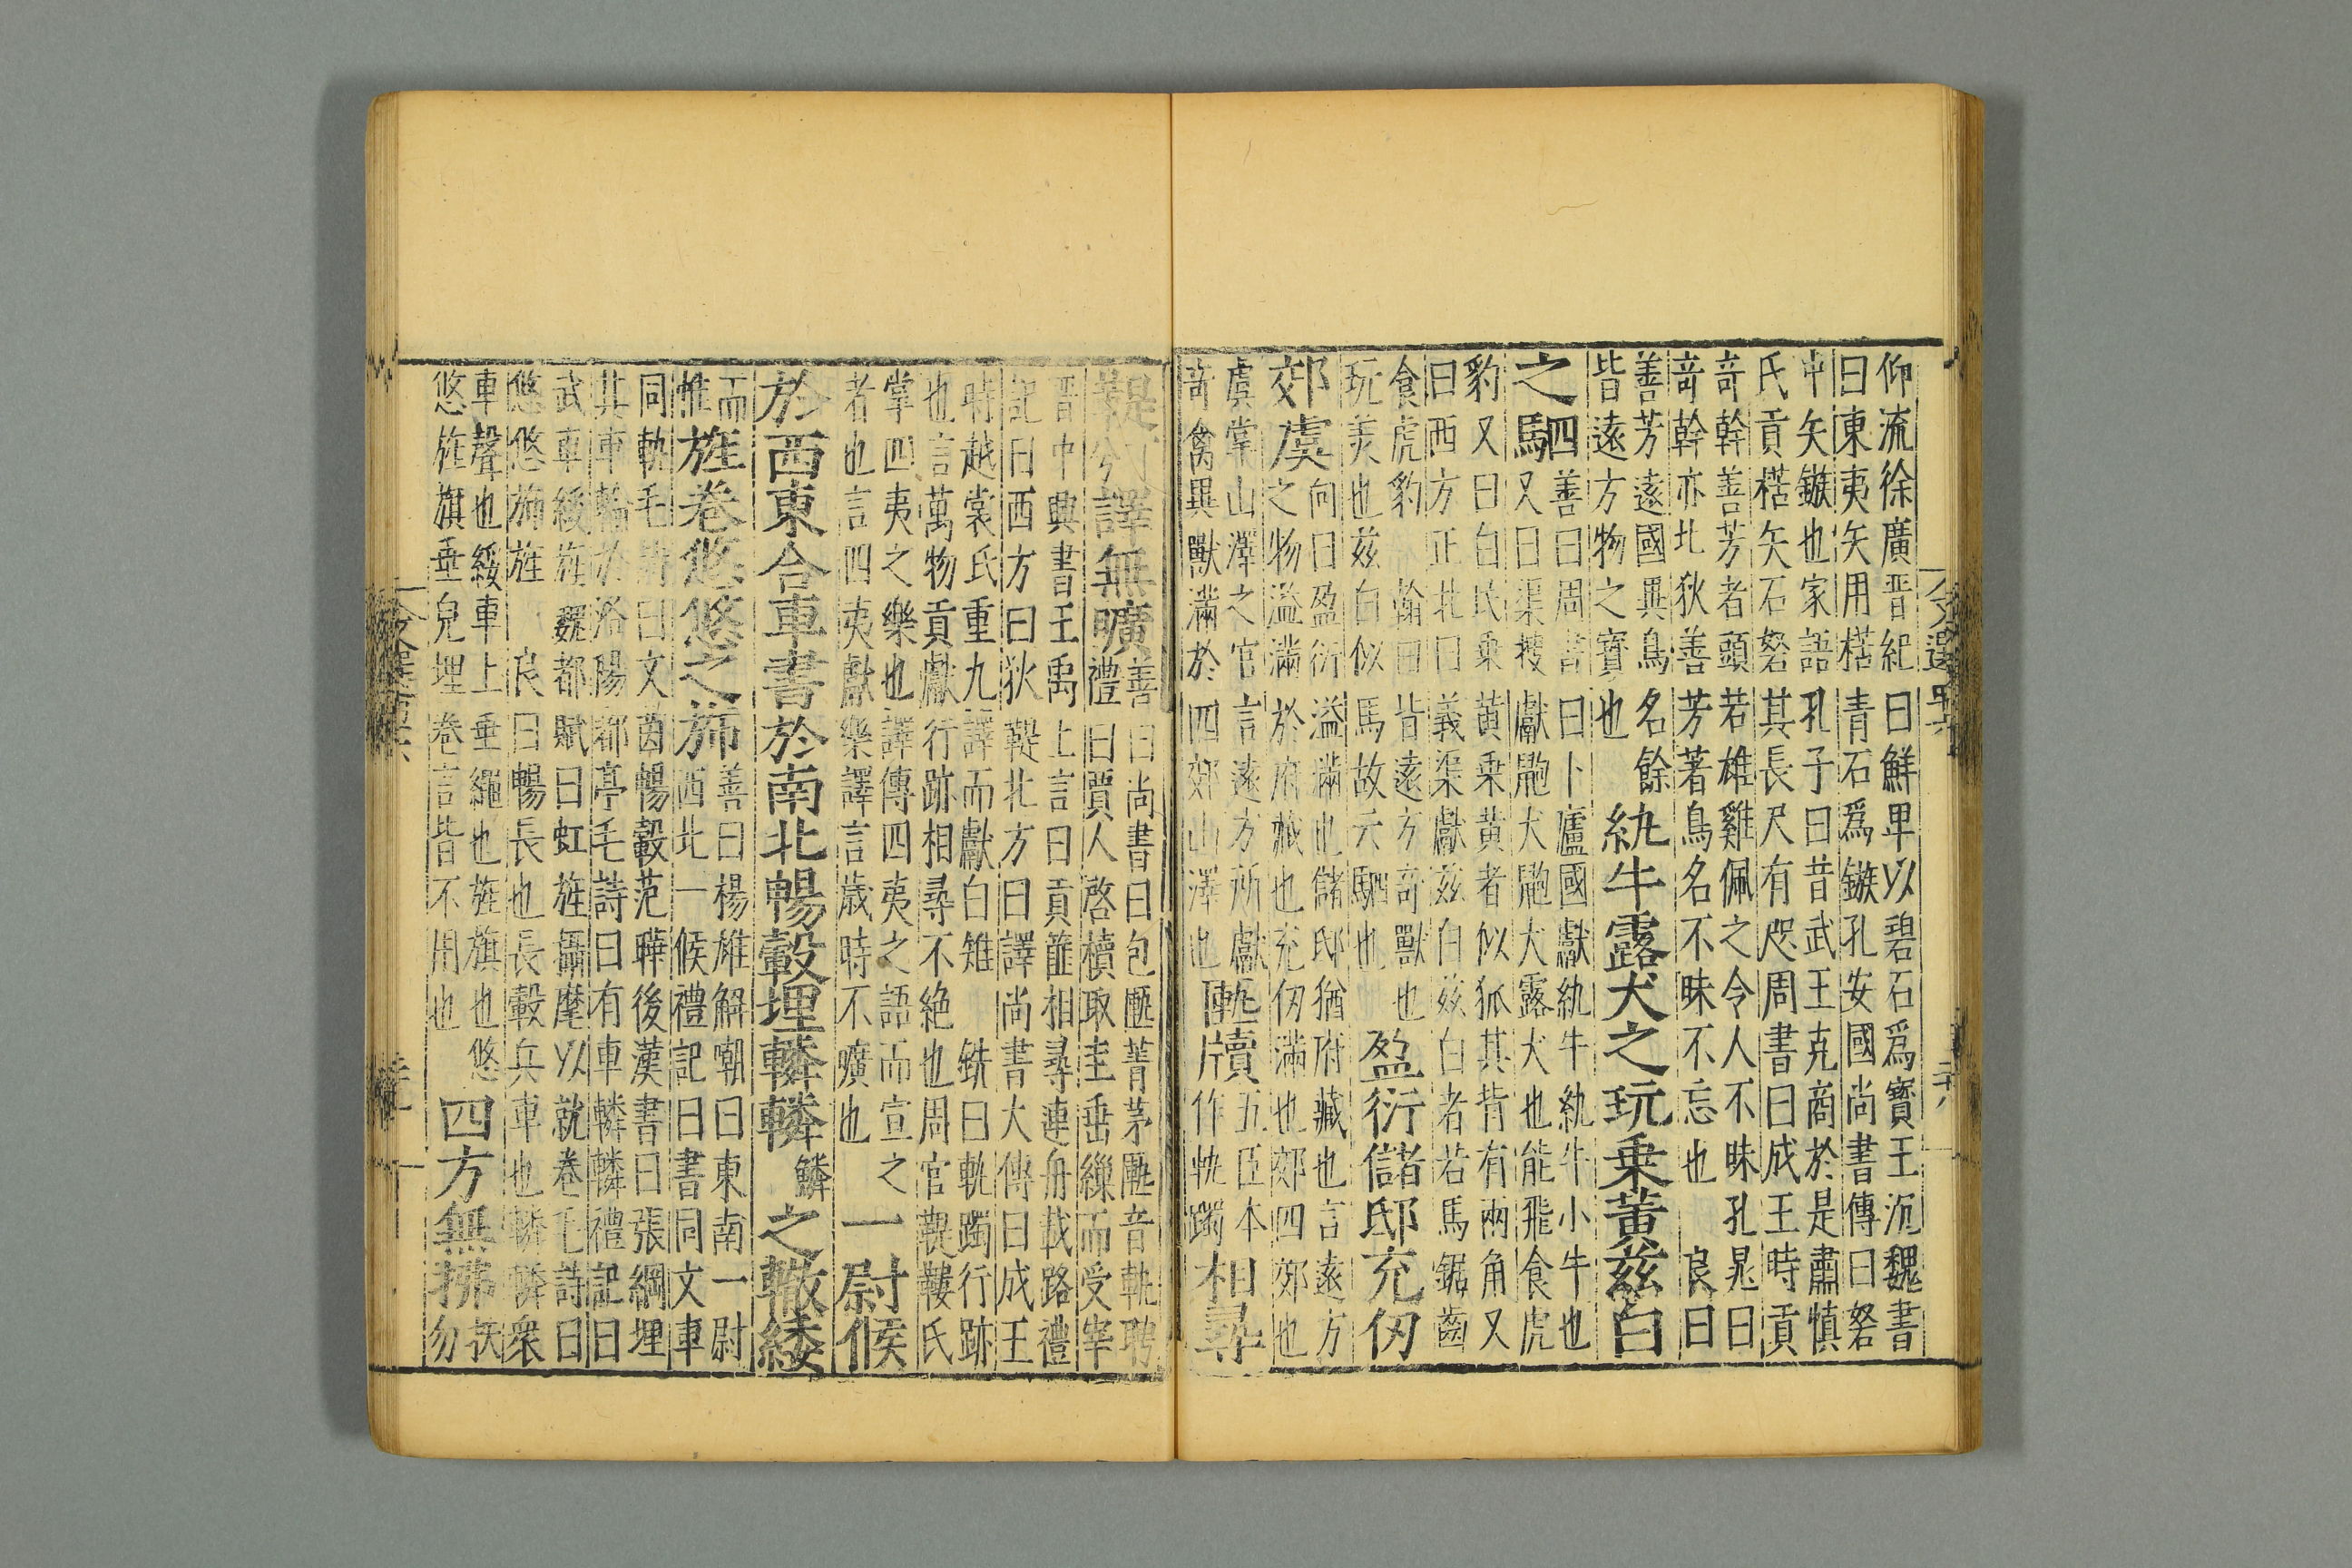 仰流徐廣晋紀曰鮮卑以碧石爲寳王沉魏書
曰東夷矢用楛青石爲鏃孔安國尚書傳曰砮
中矢鏃也家語孔子曰昔武王克商於是肅慎
氏貢楛矢石砮其長尺有咫周書曰成王時貢
竒幹善芳者頭若雄雞佩之令人不昧孔晁曰
竒幹亦北狄善芳著鳥名不昧不忘也 良曰
善芳逺國異鳥名餘
皆逺方物之寳也
紈牛露犬之玩乗黄兹白
之駟
善曰周書曰卜廬國獻紈牛紈牛小牛也
又曰渠搜獻䶂犬䶂犬露犬也能飛食虎
豹又曰白民乗黄乗黄者似狐其背有兩角又
曰西方正北曰義渠獻兹白兹白者若馬鋸齒
食虎豹 翰曰皆逺方竒獸也
玩羡也兹白似馬故云駟也
盈衍儲邸充仞
郊虞
向曰盈衍溢滿也儲邸猶府藏也言逺方
之物溢滿於府藏也充仞滿也郊四郊也
虞掌山澤之官言逺方所獻
竒禽異獸滿於四郊山澤也
匭牘
五臣本
作軌躅
相尋
鞮 譯無曠
善曰尚書曰包匭菁茅匭音軌聘
禮曰賈人啓櫝取圭垂繅而受宰
晋中興書王禹上言曰貢篚相尋連舟載路禮
記曰西方曰狄鞮北方曰譯尚書大傳曰成王
時越裳氏重九譯而獻白雉 銑曰軌躅行跡
也言萬物貢獻行跡相尋不絶也周官鞮鞻氏
掌四夷之樂也譯傳四夷之語而宣之
者也言四夷獻樂譯言歳時不曠也
一尉候
於西東合車書於南北暢轂埋轔轔
鱗
之轍綏
而
惟
旌卷悠悠之斾
善曰楊雄解嘲曰東南一尉
西北一候禮記曰書同文車
同軌毛詩曰文茵暢轂范曄後漢書曰張綱埋
其車輪於洛陽都亭毛詩曰有車轔轔禮記曰
武車綏旌魏都賦曰虹旌攝麾以就卷毛詩曰
悠悠斾旌 良曰暢長也長轂兵車也轔轔衆
車聲也綏車上垂繩也旌旗也悠
悠旌旗垂皃埋卷言皆不用也
四方無拂